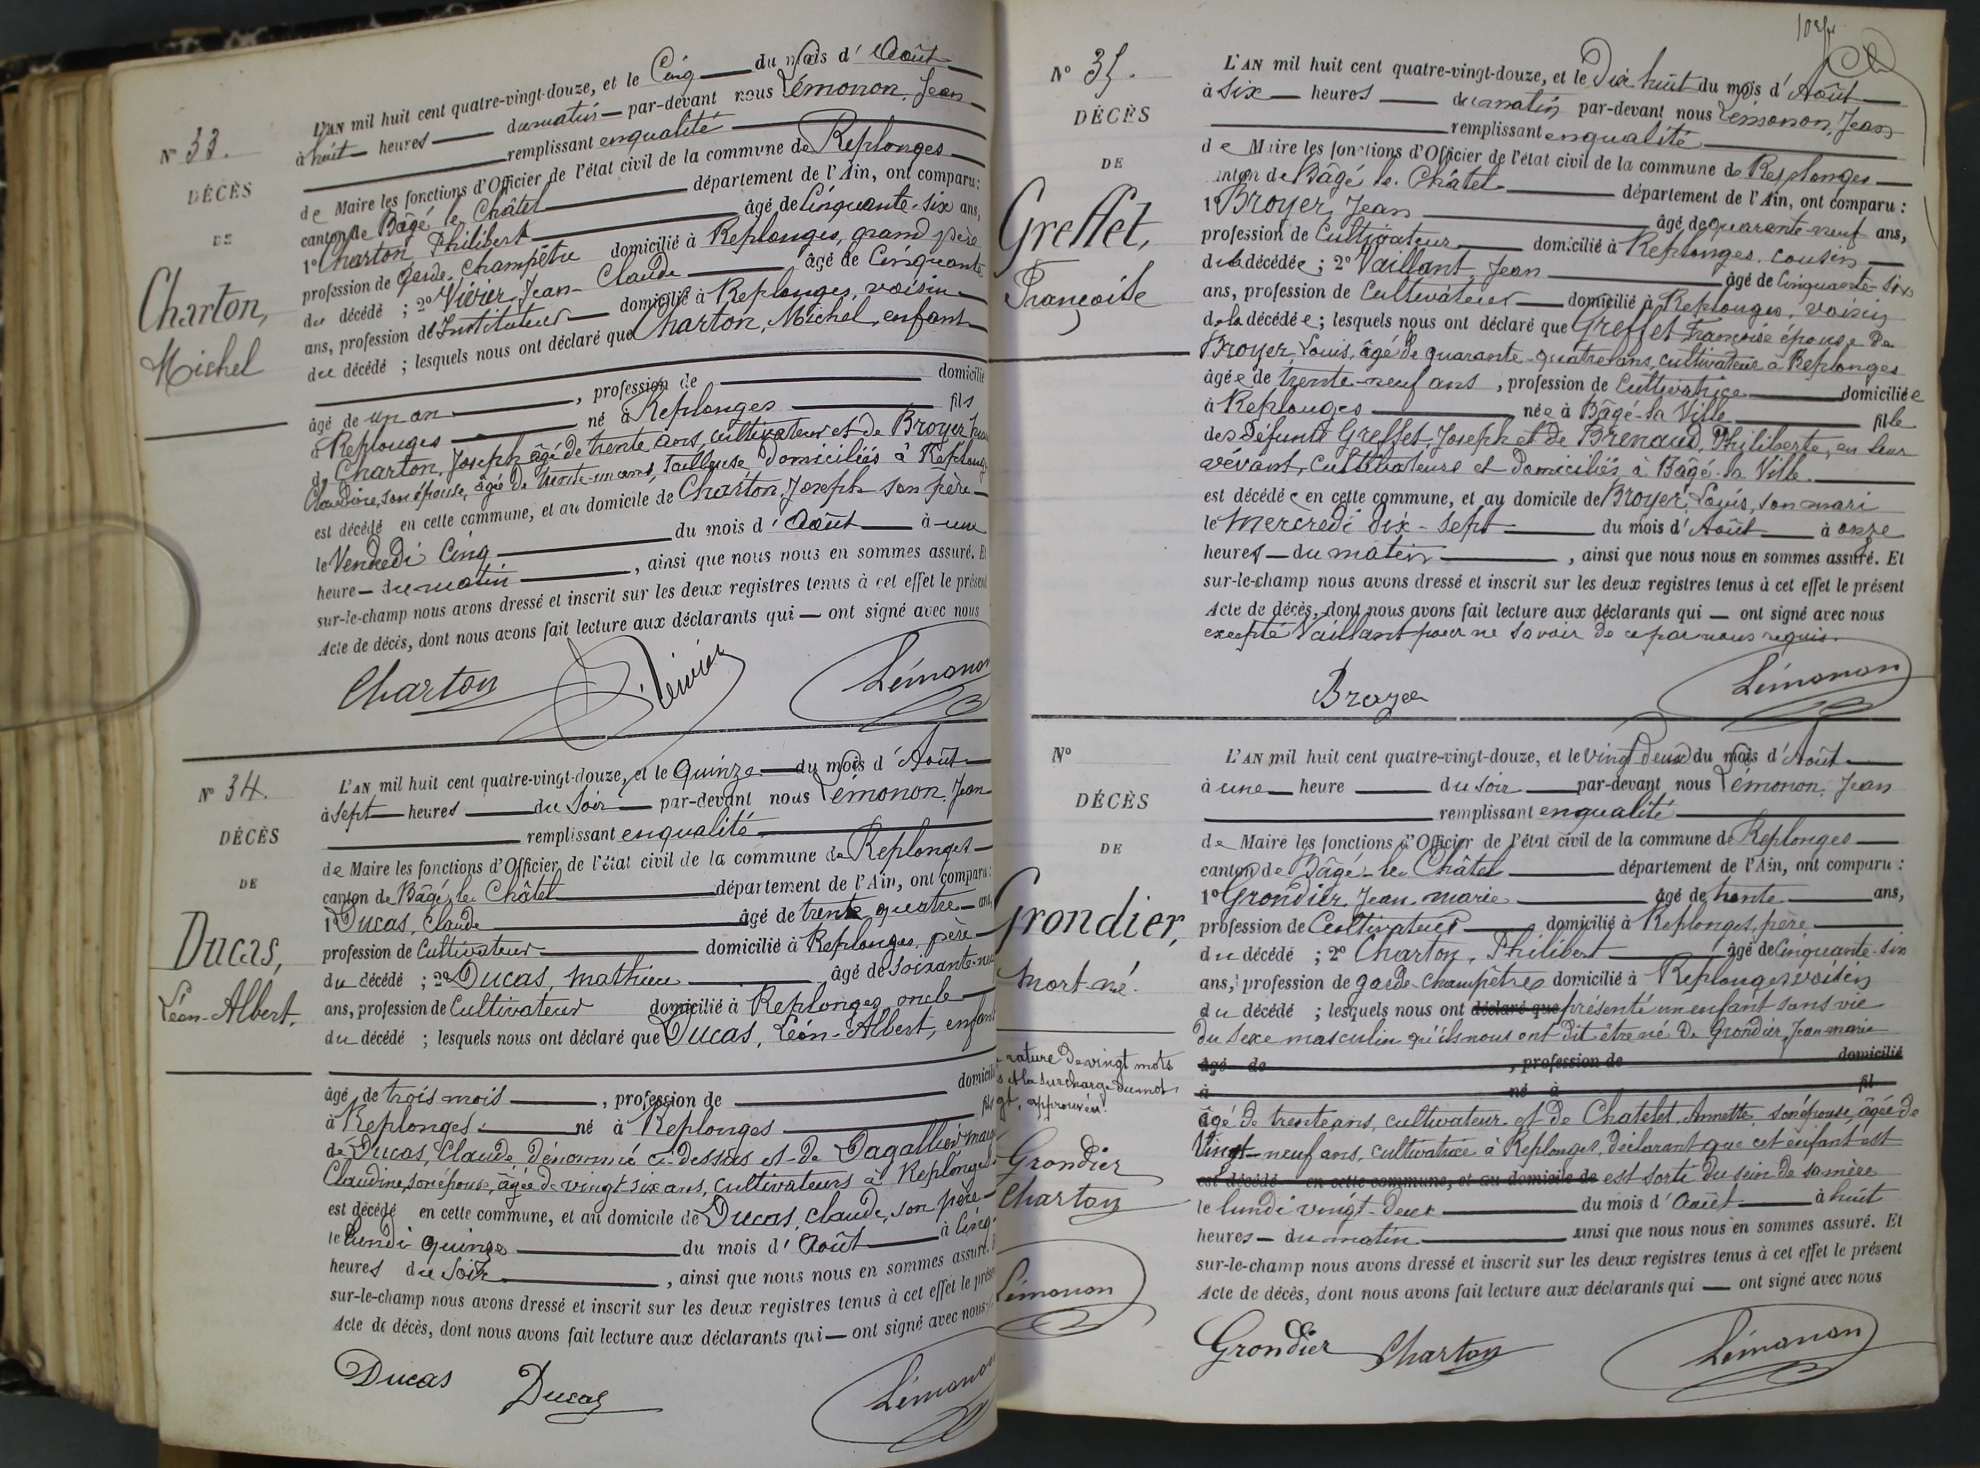 N° 33.
DÉCÈS
DE
Charton,
Michel
L'AN mil huit cent quatre-vingt-douze, et le Cinq du mois d'Août
à huit heures du matin par-devant nous Lémonon, Jean
remplissant en qualité
de Maire les fonctions d'Officier de l'état civil de la commune de Replonges
canton de Bâgé le Châtel département de l'Ain, ont comparu :
1° Charton Philibert âgé de Cinquante-six ans,
profession de garde-champêtre domicilié à Replonges, grand père
du décédé ; 2° Vivier Jean-Claude âgé de Cinquante
ans, profession d'Instituteur domicilié à Replonges, voisin
du décédé ; lesquels nous ont déclaré que Charton, Michel, enfant
âgé de un an , profession de domicilié
à Replonges né à Replonges fils
de Charton, Joseph âgé de trente ans, cultivateur et de Broyer
Claudine, son épouse, âgée de trente-un ans, tailleuse, domiciliés à Replonges
est décédé en cette commune, et au domicile de Charton, Joseph son père
le Vendredi Cinq du mois d'Août à une
heure du matin , ainsi que nous nous en sommes assuré. Et
sur-le-champ nous avons dressé et inscrit sur les deux registres tenus à cet effet le présent
Acte de décès, dont nous avons fait lecture aux déclarants qui ont signé avec nous
Charton Vivier Lémonon
N° 34.
DÉCÈS
DE
Ducas,
Léon-Albert.
L'AN mil huit cent quatre-vingt-douze, et le quinze du mois d'Août
à sept heures du soir par-devant nous Lémonon, Jean
remplissant en qualité
de Maire les fonctions d'Officier de l'état civil de la commune de Replonges
canton de Bâgé-le-Châtel département de l'Ain, ont comparu :
1° Ducas, Claude âgé de trente quatre ans,
profession de Cultivateur domicilié à Replonges, père
du décédé ; 2° Ducas, Mathieu âgé de soixante-
ans, profession de Cultivateur domicilié à Replonges, oncle
du décédé ; lesquels nous ont déclaré que Ducas, Léon-Albert, enfant
âgé de trois mois , profession de domicilié
à Replonges né à Replonges fils
de Ducas, Claude dénommé ci-dessus et de Dagallier
Claudine, son épouse, âgée de vingt-six ans, cultivateurs à Replonges
est décédé en cette commune, et au domicile de Ducas, Claude, son père
le lundi quinze du mois d'Août à Cinq
heures du soir , ainsi que nous nous en sommes assuré. Et
sur-le-champ nous avons dressé et inscrit sur les deux registres tenus à cet effet le présent
Acte de décès, dont nous avons fait lecture aux déclarants qui ont signé avec nous
Ducas Ducas Lémonon
N° 35.
DÉCÈS
DE
Greffet,
Françoise
L'AN mil huit cent quatre-vingt-douze, et le Dix huit du mois d'Août
à six heures du matin par-devant nous Lémonon, Jean
remplissant en qualité
de Maire les fonctions d'Officier de l'état civil de la commune de Replonges
canton de Bâgé le Châtel département de l'Ain, ont comparu :
1° Broyer, Jean âgé de quarante-neuf ans,
profession de Cultivateur domicilié à Replonges, cousin
de la décédée ; 2° Vaillant, Jean âgé de Cinquante-six
ans, profession de Cultivateur domicilié à Replonges, voisin
de la décédée ; lesquels nous ont déclaré que Greffet Françoise épouse de
Broyer, Louis, âgé de quarante-quatre ans, cultivateur à Replonges
âgée de trente-neuf ans , profession de Cultivatrice domiciliée
à Replonges née à Bâgé-la Ville fille
des défunts Greffet, Joseph et de Brenaud, Philiberte, en leur
vivant, cultivateurs et domiciliés à Bâgé-la Ville.
est décédée en cette commune, et au domicile de Broyer, Louis, son mari
le Mercredi dix-sept du mois d'Août à onze
heures du matin , ainsi que nous nous en sommes assuré. Et
sur-le-champ nous avons dressé et inscrit sur les deux registres tenus à cet effet le présent
Acte de décès, dont nous avons fait lecture aux déclarants qui ont signé avec nous
excepté Vaillant pour ne savoir de ce par nous requis.
Broyer Lémonon
N°
DÉCÈS
DE
Grondier,
Mort-né.
L'AN mil huit cent quatre-vingt-douze, et le vingt deux du mois d'Août
à une heure du soir par-devant nous Lémonon, Jean
remplissant en qualité
de Maire les fonctions d'Officier de l'état civil de la commune de Replonges
canton de Bâgé-le-Châtel département de l'Ain, ont comparu :
1° Grondier, Jean-Marie âgé de trente ans,
profession de Cultivateur domicilié à Replonges, père
du décédé ; 2° Charton, Philibert âgé de Cinquante-six
ans, profession de garde champêtre domicilié à Replonges voisin
du décédé ; lesquels nous ont déclaré que présenté un enfant sans vie
du sexe masculin qu'ils nous ont dit être né de Grondier, Jean-Marie
âgé de , profession de domicilié
à né à fil
âgé de trente ans, cultivateur et de Chatelet, Annette, son épouse, âgée de
Vingt-neuf ans, cultivatrice à Replonges, déclarant que cet enfant est
est décédé en cette commune, et au domicile de est sorti du sein de sa mère
le lundi vingt-deux du mois d'Août à huit
heures du matin ainsi que nous nous en sommes assuré. Et
sur-le-champ nous avons dressé et inscrit sur les deux registres tenus à cet effet le présent
Acte de décès, dont nous avons fait lecture aux déclarants qui ont signé avec nous
Grondier Charton Lémonon
rature de vingt mots
et la surcharge du mot
approuvés.
Grondier
Charton
Lémonon